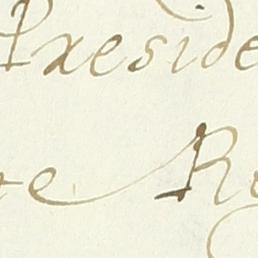 Preside
re Re